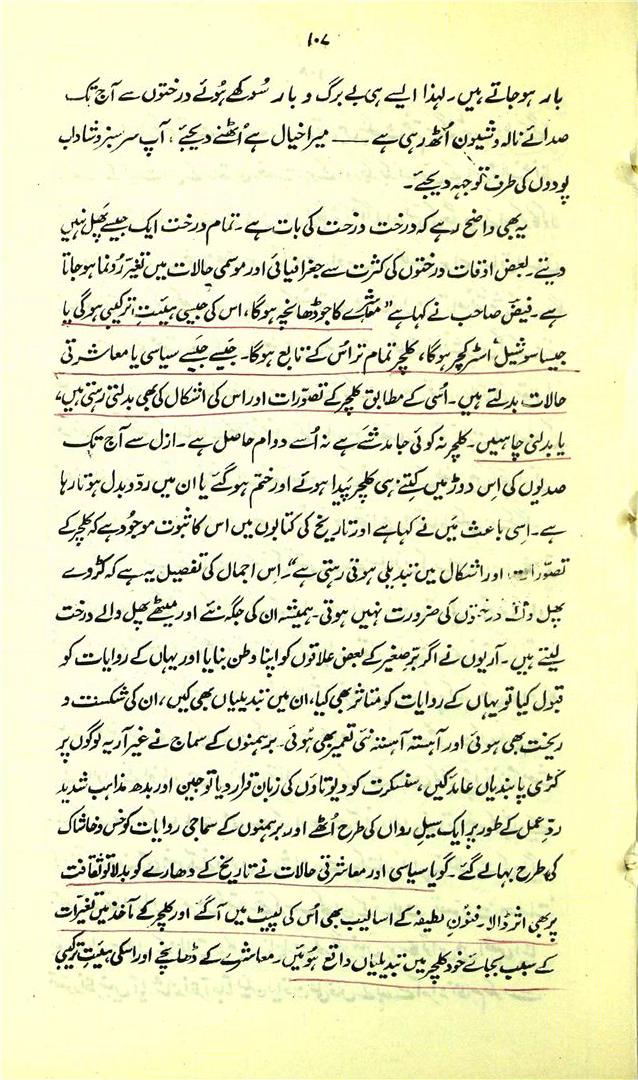 ۱۰۷
بار ہو جاتے ہیں۔ لہذا ایسے ہی بے برگ و بار سُوکھے ہُوئے درختوں سے آج تک
صدائے نالہ و شیون اُٹھ رہی ہے —— میرا خیال ہے اُٹھنے دیجئے، آپ سرسبز و شاداب
پودوں کی طرف توجہہ دیجئے۔
یہ بھی واضح رہے کہ درخت درخت کی بات ہے۔ تمام درخت ایک جیسے پھل نہیں
دیتے۔ بعض اوقات درختوں کی کثرت سے جغرافیائی اور موسمی حالات میں تغیّر رُونما ہو جاتا
ہے۔ فیض صاحب نے کہا ہے "معاشرے کا جو ڈھانچہ ہو گا، اس کی جیسی ہیئتِ ترکیبی ہو گی یا
جیسا سوشیل اسٹرکچر ہو گا، کلچر تمام تر اس کے تابع ہو گا۔ جیسے جیسے سیاسی یا معاشرتی
حالات بدلتے ہیں۔ اُسی کے مطابق کلچر کے تصوّرات اور اس کی اشکال کی بھی بدلتی رہتی ہیں،
یا بدلنی چاہییں۔ کلچر نہ کوئی جامد شئے ہے نہ اُسے دوام حاصل ہے۔ ازل سے آج تک
صدیوں کی اس دوڑ میں کِتنے ہی کلچر پَیدا ہوئے اور ختم ہو گئے یا ان میں ردّ و بدل ہوتا رہا
ہے۔ اِسی باعث میں نے کہا ہے اور تاریخ کی کتابوں میں اس کا ثبوت موجود ہے کہ کلچر کے
تصوّرات اور اشکال میں تبدیلی ہوتی رہتی ہے"۔ اس اجمال کی تفصیل یہ ہے کہ کڑوے
پھل والے درختوں کی ضرورت نہیں ہوتی۔ ہمیشہ ان کی جگہ نئے اور میٹھے پھل والے درخت
لیتے ہیں۔ آریوں نے اگر برّصغیر کے بعض علاقوں کو اپنا وطن بنایا اور یہاں کے روایات کو
قبول کیا تو یہاں کے روایات کو متاثر بھی کیا، ان میں تبدیلیاں بھی کیں، ان کی شکست و
ریخت بھی ہوئی اور آہستہ آہستہ نئی تعمیر بھی ہُوئی۔ برہمنوں کے سماج نے غیر آریہ لوگوں پر
کڑی پابندیاں عائد کیں، سنسکرت کو دیوتاؤں کی زبان قرار دیا تو جین اور بدھ مذاہب شدید
ردِّ عمل کے طور پر ایک سیلِ رواں کی طرح اُٹھے اور برہمنوں کے سماجی روایات کو خس و خاشاک
کی طرح بہا لے گئے۔ گویا سیاسی اور معاشرتی حالات نے تاریخ کے دھارے کو بدلا تو ثقافت
پر بھی اثر ڈالا۔ فنونِ لطیفہ کے اسالیب بھی اُس کی لپیٹ میں آ گئے اور کلچر کے مآخذ میں تغیرات
کے سبب بجائے خود کلچر میں تبدیلیاں واقع ہُوئیں۔ معاشرے کے ڈھانچے اور اسکی ہیئتِ ترکیبی